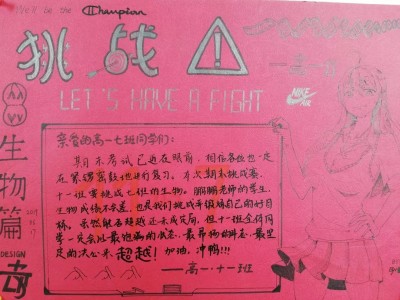 We'll be the Champion
挑战
高一·十一班
LET'S HAVE A FIGHT
NIKE
AIR
生物篇
DESIGN
亲爱的高一七班同学们:
期末考试已近在眼前,相信各位也一定
在紧锣密鼓地进行复习。本次期末挑战赛,
十一班要挑战七班的生物。
生物成绩不容差,也是我们挑战并锻炼自己的好目
标。虽然能否超越还未成定局,但十一班全体同
学一定会以最饱满的状态、最昂扬的斗志、最坚
定的决心来超越!加油,冲鸭!!!
——高一·十一班